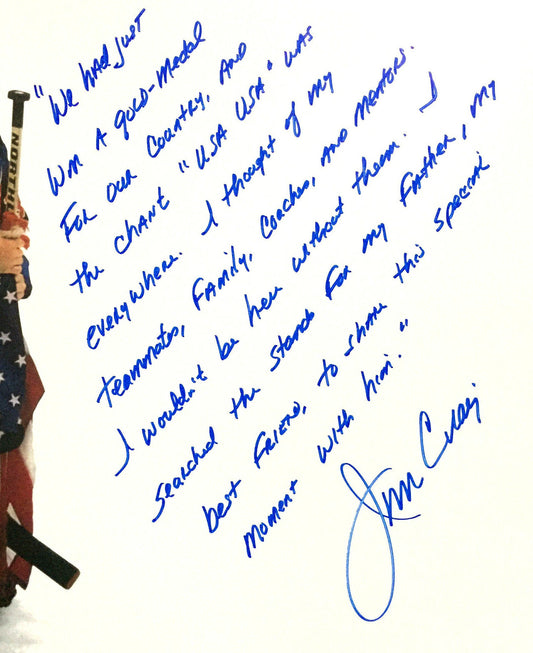 "We had just
Won A gold-medal
For our Country, AND
the chant "USA USA" was
everywhere. I thought of my
teammates, Family, Coaches, AND Mentors.
I wouldn't be here without them. I
searched the stands For my Father, my
best Friend, to share this special
moment with him."
Jim Craig
NORTHLAND